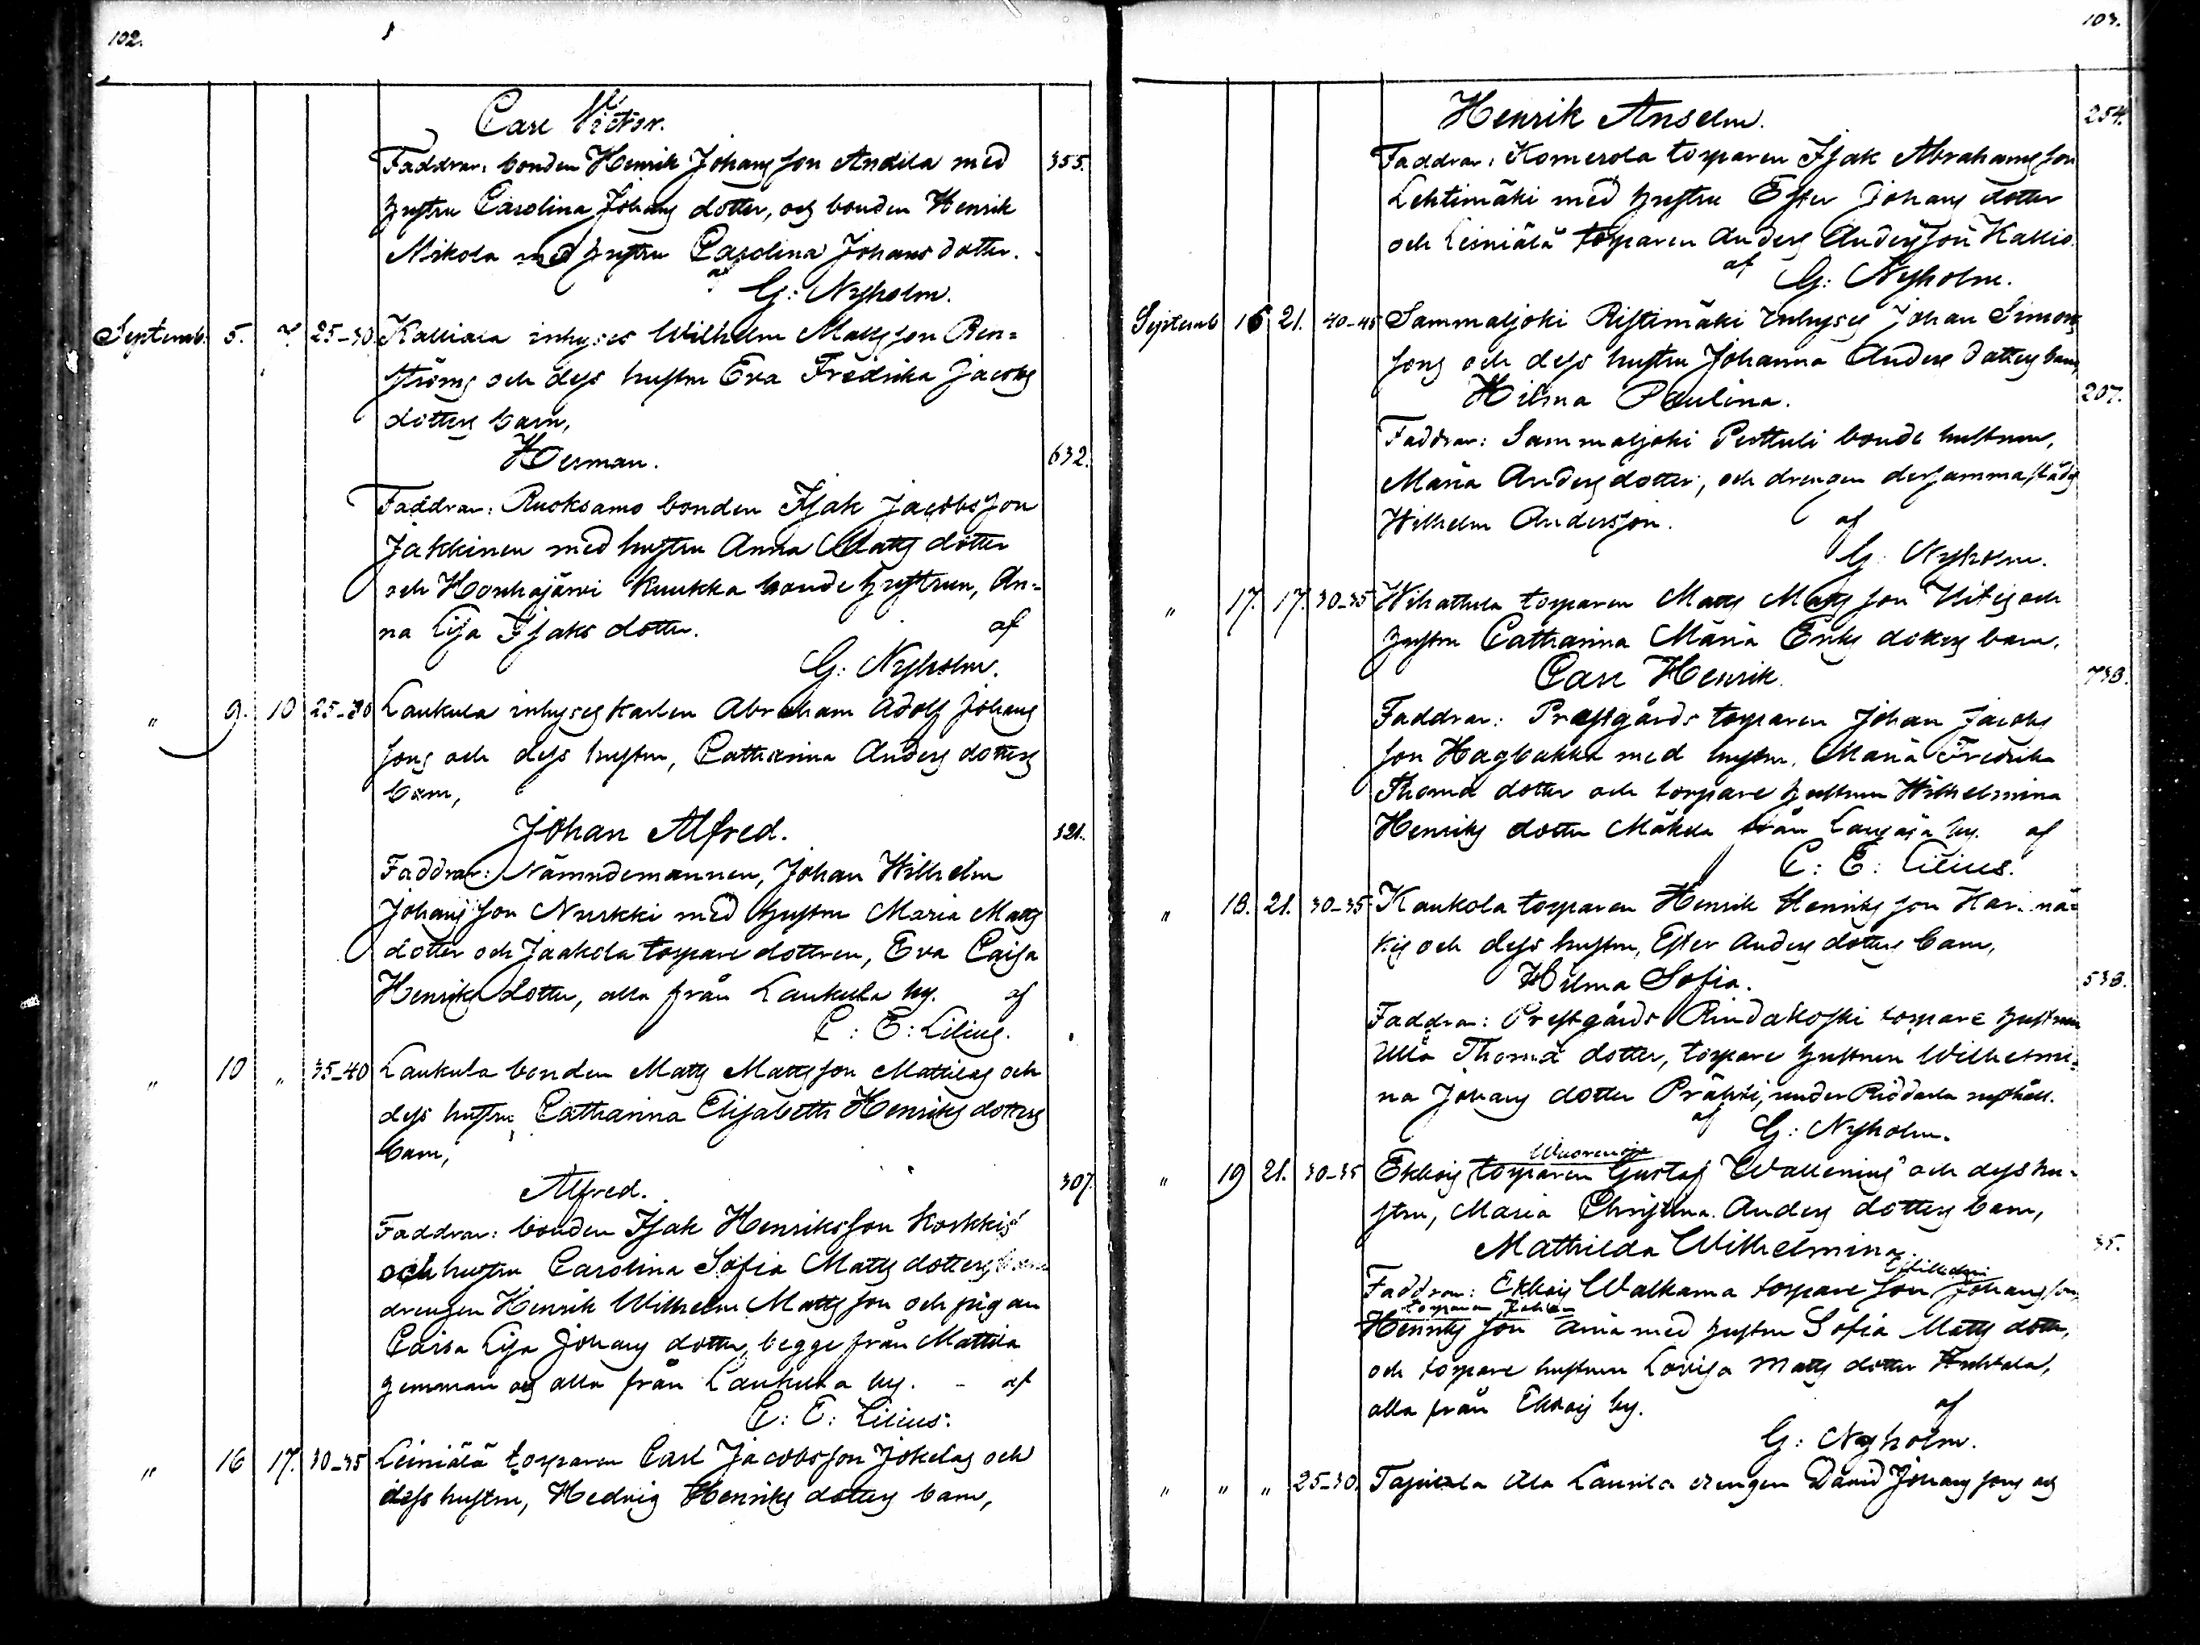 102.
Carl Victor.
Faddrar: bonden Henrik Johansson Andila med 355.
hustru Carolina Johans dotter, och bonden Henrik
Nikola med hustru Carolina Johans dotter.
af
G: Nyholm.
Septemb. 5. 7. 25-30 Kalliala inhyses Wilhelm Mattsson Ren=
ströms och dess hustru Eva Fredrika Jacobs
dotters barn,
Herman. 632.
Faddrar: Ruoksamo bonden Isak Jacobsson
Jakkinen med hustru Anna Matts dotter
och Honkajärvi Kuukka bonde hustrun, An=
na Lisa Isaks dotter. af
G: Nyholm.
" 9. 10 25-30 Laukula inhyses karlen Abraham Adolf Johans
sons och dess hustru, Catharina Anders dotters
barn,
Johan Alfred. 321.
Faddrar: Nämndemannen, Johan Wilhelm
Johansson Nurkki med hustru Maria Matts
dotter och Jaakola torpare dottren, Eva Caisa
Henriks dotter, alla från Laukula by. af
C: E: Lilius.
" 10 " 35-40 Laukula bonden Matts Mattsson Mattilas och
dess hustru Catharina Elisabeth Henriks dotters
barn,
Alfred. 307.
Faddrar: bonden Isak Henriksson Korkkis
och hustru Carolina Sofia Matts dotters
drengen Henrik Wilhelm Mattsson och pigan
Caisa Lisa Johans dotter, begge från Mattila
hemman och alla från Laukula by. - af
C: E: Lilius.
" 16 17. 30-35 Leiniälä torparen Carl Jacobsson Jokelas och
dess hustru, Hedvig Henriks dotters barn,
103.
Henrik Anselm. 254.
Faddrar: Komerola torparen Isak Abrahamsson
Lehtimäki med hustru Ester Johans dotter
och Leiniälä torparen Anders Andersson Kallio.
af
G: Nyholm.
Septemb 16 21. 40-45 Sammaljoki Ristimäki Inhyses Johan Simons
sons och dess hustru Johanna Anders dotters barn,
Hilma Paulina. 207.
Faddrar: Sammaljoki Perttuli bonde hustrun,
Maria Anders dotter, och drengen dersammastäds
Wilhelm Andersson. af
G: Nyholm.
" 17. 17. 30-35 Wihattula torparen Matts Mattsson och
hustru Catharina Maria Eriks dotters barn.
Carl Henrik. 738.
Faddrar: Prestgårds torparen Johan Jacobs
son Hagbakka med hustru, Maria Fredrika
Thomæ dotter och torpare hustrun Wilhelmina
Henriks dotter Mäkelä från by. af
C: E: Lilius.
" 18. 21. 30-35 Kaukola torparen Henrik Henriksson Har. nä=
kis och dess hustru, Ester Anders dotters barn,
Hilma Sofia. 538.
Faddrar: Prestgårds Rindakoski torpare hustrun
Ulla Thomæ dotter, torpare hustrun Wilhelmi=
na Johans dotter Prähki, under Riddarla rusthåll.
af
G: Nyholm.
Wuorenoja
" 19 21. 30-35 Ekbois torparen Gustaf Wallenius och dess hu=
stru, Maria Christina Anders dotters barn,
Mathilda Wilhelmina. 35.
Faddrar: Ekbois Walkama torpare son Wilhelm Johansson
torparen Johan
Henriks son med hustru Sofia Matts dotter,
och torpare hustrun Lovisa Matts dotter Huhtala,
alla från Ekbois by. af
G: Nyholm.
" " " 25-30. Ala Laurila drengen David Johanssons och